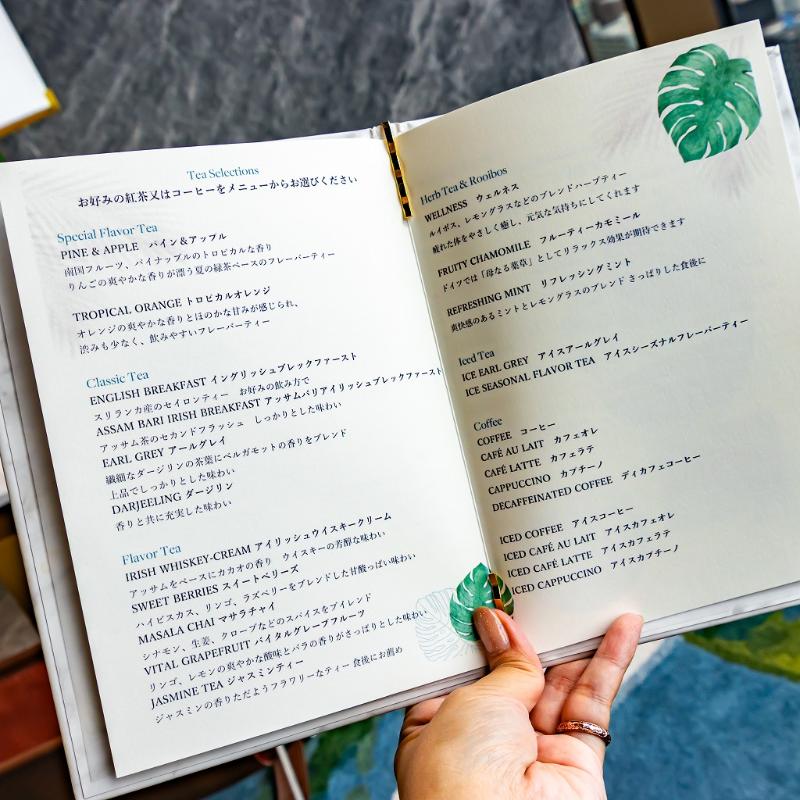 Tea Selections
お好みの紅茶又はコーヒーをメニューからお選びください
Special Flavor Tea
PINE & APPLE パイン&アップル
南国フルーツ、パイナップルのトロピカルな香り
りんごの爽やかな香りが漂う夏の緑茶ベースのフレーバーティー
TROPICAL ORANGE トロピカルオレンジ
オレンジの爽やかな香りとほのかな甘みが感じられ、
渋みも少なく、飲みやすいフレーバーティー
Classic Tea
ENGLISH BREAKFAST イングリッシュブレックファースト
スリランカ産のセイロンティー お好みの飲み方で
ASSAM BARI IRISH BREAKFAST アッサムバリアイリッシュブレックファースト
アッサム茶のセカンドフラッシュ しっかりとした味わい
EARL GREY アールグレイ
繊細なダージリンの茶葉にベルガモットの香りをブレンド
上品でしっかりとした味わい
DARJEELING ダージリン
香りと共に充実した味わい
Flavor Tea
IRISH WHISKEY-CREAM アイリッシュウイスキークリーム
アッサムをベースにカカオの香り ウイスキーの芳醇な味わい
SWEET BERRIES スイートベリーズ
ハイビスカス、リンゴ、ラズベリーをブレンドした甘酸っぱい味わい
MASALA CHAI マサラチャイ
シナモン、生姜、クローブなどのスパイスをブイレンド
VITAL GRAPEFRUIT バイタルグレープフルーツ
リンゴ、レモンの爽やかな酸味とバラの香りがさっぱりとした味わい
JASMINE TEA ジャスミンティー
ジャスミンの香りただようフラワリーなティー 食後にお薦め
Herb Tea & Rooibos
WELLNESS ウェルネス
ルイボス、レモングラスなどのブレンドハーブティー
疲れた体をやさしく癒し、元気な気持ちにしてくれます
FRUITY CHAMOMILE フルーティーカモミール
ドイツでは「母なる薬草」としてリラックス効果が期待できます
REFRESHING MINT リフレッシングミント
爽快感のあるミントとレモングラスのブレンド さっぱりした食後に
Iced Tea
ICE EARL GREY アイスアールグレイ
ICE SEASONAL FLAVOR TEA アイスシーズナルフレーバーティー
Coffee
COFFEE コーヒー
CAFÉ AU LAIT カフェオレ
CAFÉ LATTE カフェラテ
CAPPUCCINO カプチーノ
DECAFFEINATED COFFEE ディカフェコーヒー
ICED COFFEE アイスコーヒー
ICED CAFÉ AU LAIT アイスカフェオレ
ICED CAFÉ LATTE アイスカフェラテ
ICED CAPPUCCINO アイスカプチーノ